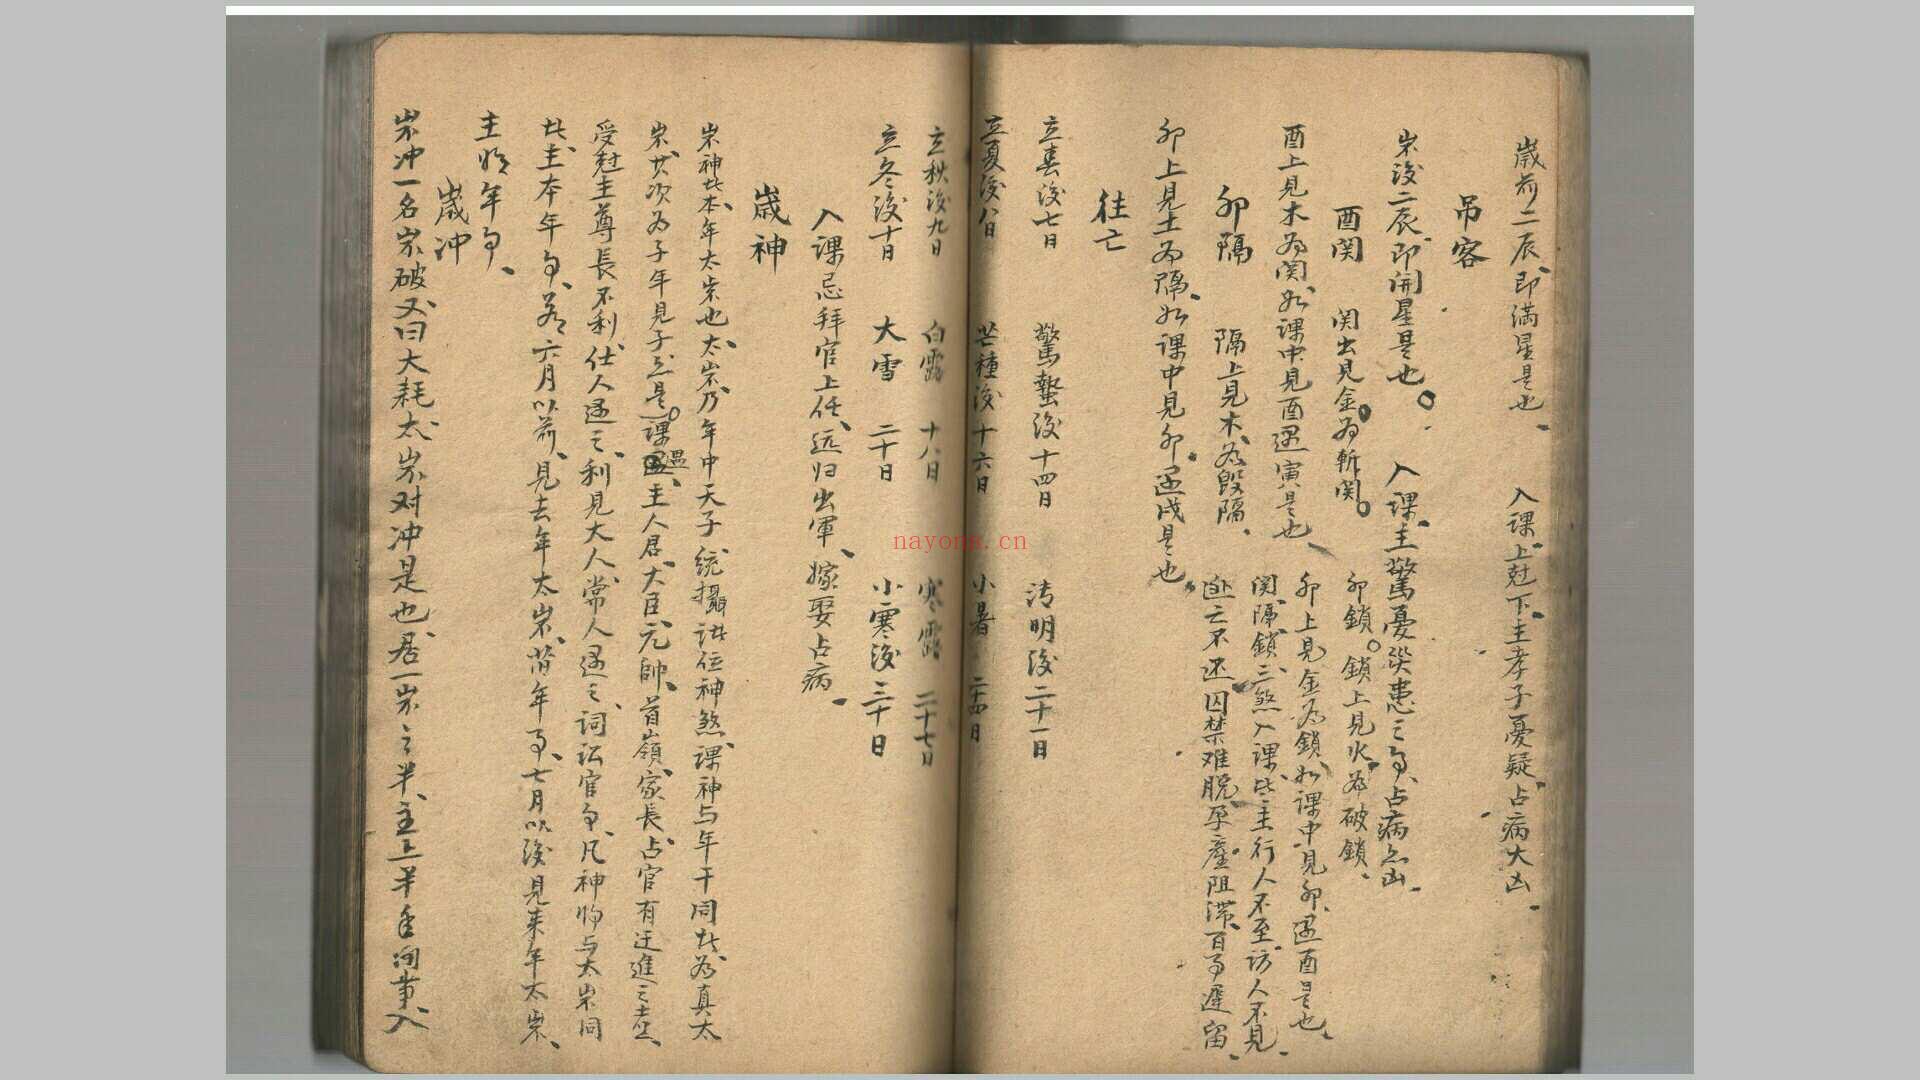 歳前二辰、即満星是也、 入課上尅下、主孝子憂疑、占病大凶、
吊客
岁後二辰、即開星是也。 入課、主驚憂災患之事、占病亦凶、
酉関 関上見金為斬関。 卯鎖。鎖上見火、為破鎖、
酉上見木為関、如課中見酉遇寅是也、 卯上見金為鎖、如課中見卯、遇酉是也、
卯隔 隔上見木、為毀隔、 関隔鎖、三煞入課、此主行人不至、訪人不見、
卯上見土為隔、如課中見卯、遇戌是也、 逃亡不还囚禁难脱、孕産阻滞、百事遲留、
往亡
立春後七日 驚蟄後十四日 清明後二十一日
立夏後八日 芒種後十六日 小暑 二十四日
立秋後九日 白露 十八日 寒露 二十七日
立冬後十日 大雪 二十日 小寒後三十日
入課忌拜官上任、远归出軍、嫁娶占病、
歳神
岁神此本年太岁也、太岁乃年中天子、統攝諸位神煞、課神与年干同此為真太
岁、其次为子年見子亦是。課遇主人君、大臣、元帥、首嶺、家長、占官有迁進之志、
受尅主尊長不利、仕人遇之、利見大人、常人遇之、詞訟官事、凡神将与太岁同
此、主本年事、若六月以前、見去年太岁、 年事、七月以後見来年太岁、
主将年事、
歳冲
岁冲一名岁破、又曰大耗、太岁对冲是也、居一岁之半、主上半年间事、入